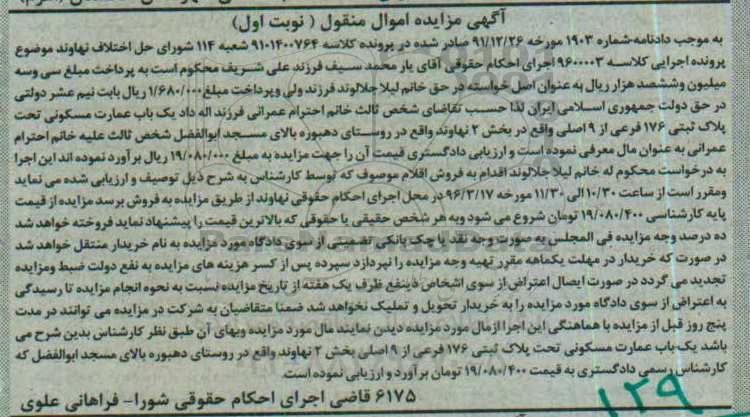 آگهی مزایده اموال منقول ( نوبت اول)
به موجب دادنامه شماره ۱۹۰۳ مورخه ۹۱/۱۲/۲۶ صادر شده در پرونده کلاسه ۹۱۰۱۴۰۰۷۶۴ شعبه ۱۱۴ شورای حل اختلاف نهاوند موضوع
پرونده اجرایی کلاسه ۹۶۰۰۰۰۳ اجرای احکام حقوقی آقای یار محمد سیف فرزند علی شریف محکوم است به پرداخت مبلغ سی وسه
میلیون وششصد هزار ریال به عنوان اصل خواسته در حق خانم لیلا جلالوند فرزند ولی وپرداخت مبلغ ۱/۶۸۰/۰۰۰ ریال بابت نیم عشر دولتی
در حق دولت جمهوری اسلامی ایران لذا حسب تقاضای شخص ثالث خانم احترام عمرانی فرزند اله داد یک باب عمارت مسکونی تحت
پلاک ثبتی ۱۷۶ فرعی از ۹ اصلی واقع در بخش ۲ نهاوند واقع در روستای دهبوره بالای مسجد ابوالفضل شخص ثالث علیه خانم احترام
عمرانی به عنوان مال معرفی نموده است و ارزیابی دادگستری قیمت آن را جهت مزایده به مبلغ ۱۹/۰۸۰/۰۰۰ ریال برآورد نموده اند این اجرا
به درخواست محکوم له خانم لیلا جلالوند اقدام به فروش اقلام موصوف که توسط کارشناس به شرح ذیل توصیف و ارزیابی شده می نماید
ومقرر است از ساعت ۱۰/۳۰ الی ۱۱/۳۰ مورخه ۹۶/۳/۱۷ در محل اجرای احکام حقوقی نهاوند از طریق مزایده به فروش برسد مزایده از قیمت
پایه کارشناسی ۱۹/۰۸۰/۴۰۰ تومان شروع می شود وبه هر شخص حقیقی یا حقوقی که بالاترین قیمت را پیشنهاد نماید فروخته خواهد شد
ده درصد وجه مزایده فی المجلس به صورت وجه نقد یا چک بانکی تضمینی از سوی دادگاه مورد مزایده به نام خریدار منتقل خواهد شد
در صورت که خریدار در مهلت یکماهه مقرر تهیه وجه مزایده را نپردازد سپرده پس از کسر هزینه های مزایده به نفع دولت ضبط ومزایده
تجدید می گردد در صورت ایصال اعتراض از سوی اشخاص ذینفع ظرف یک هفته از تاریخ مزایده نسبت به نحوه انجام مزایده تا رسیدگی
به اعتراض از سوی دادگاه مورد مزایده را به خریدار تحویل و تملیک نخواهد شد ضمنا متقاضیان به شرکت در مزایده می توانند در مدت
پنج روز قبل از مزایده با هماهنگی این اجرا ازمال مورد مزایده دیدن نمایند مال مورد مزایده وبهای آن طبق نظر کارشناس بدین شرح می
باشد یک باب عمارت مسکونی تحت پلاک ثبتی ۱۷۶ فرعی از ۹ اصلی بخش ۲ نهاوند واقع در روستای دهبوره بالای مسجد ابوالفضل که
کارشناس رسمی دادگستری به قیمت ۱۹/۰۸۰/۴۰۰ تومان برآورد و ارزیابی نموده است.
۶۱۷۵ قاضی اجرای احکام حقوقی شورا- فراهانی علوی
۱۲۹